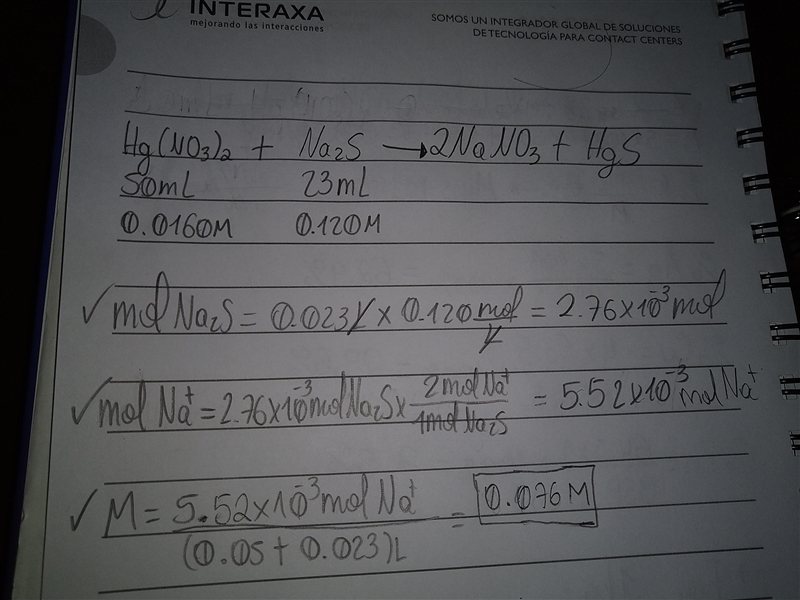 INTERAXA
mejorando las interacciones
SOMOS UN INTEGRADOR GLOBAL DE SOLUCIONES
DE TECNOLOGÍA PARA CONTACT CENTERS
Hg(NO3)2 + Na2S → 2NaNO3 + HgS
50mL 23mL
0.0160M 0.120M
✓ mol Na2S = 0.023L x 0.120 mol/L = 2.76x10⁻³ mol
✓ mol Na⁺ = 2.76x10⁻³ mol Na2S x 2mol Na⁺/1mol Na2S = 5.52x10⁻³ mol Na⁺
✓ M = 5.52x10⁻³ mol Na⁺/(0.05 + 0.023)L = 0.076 M